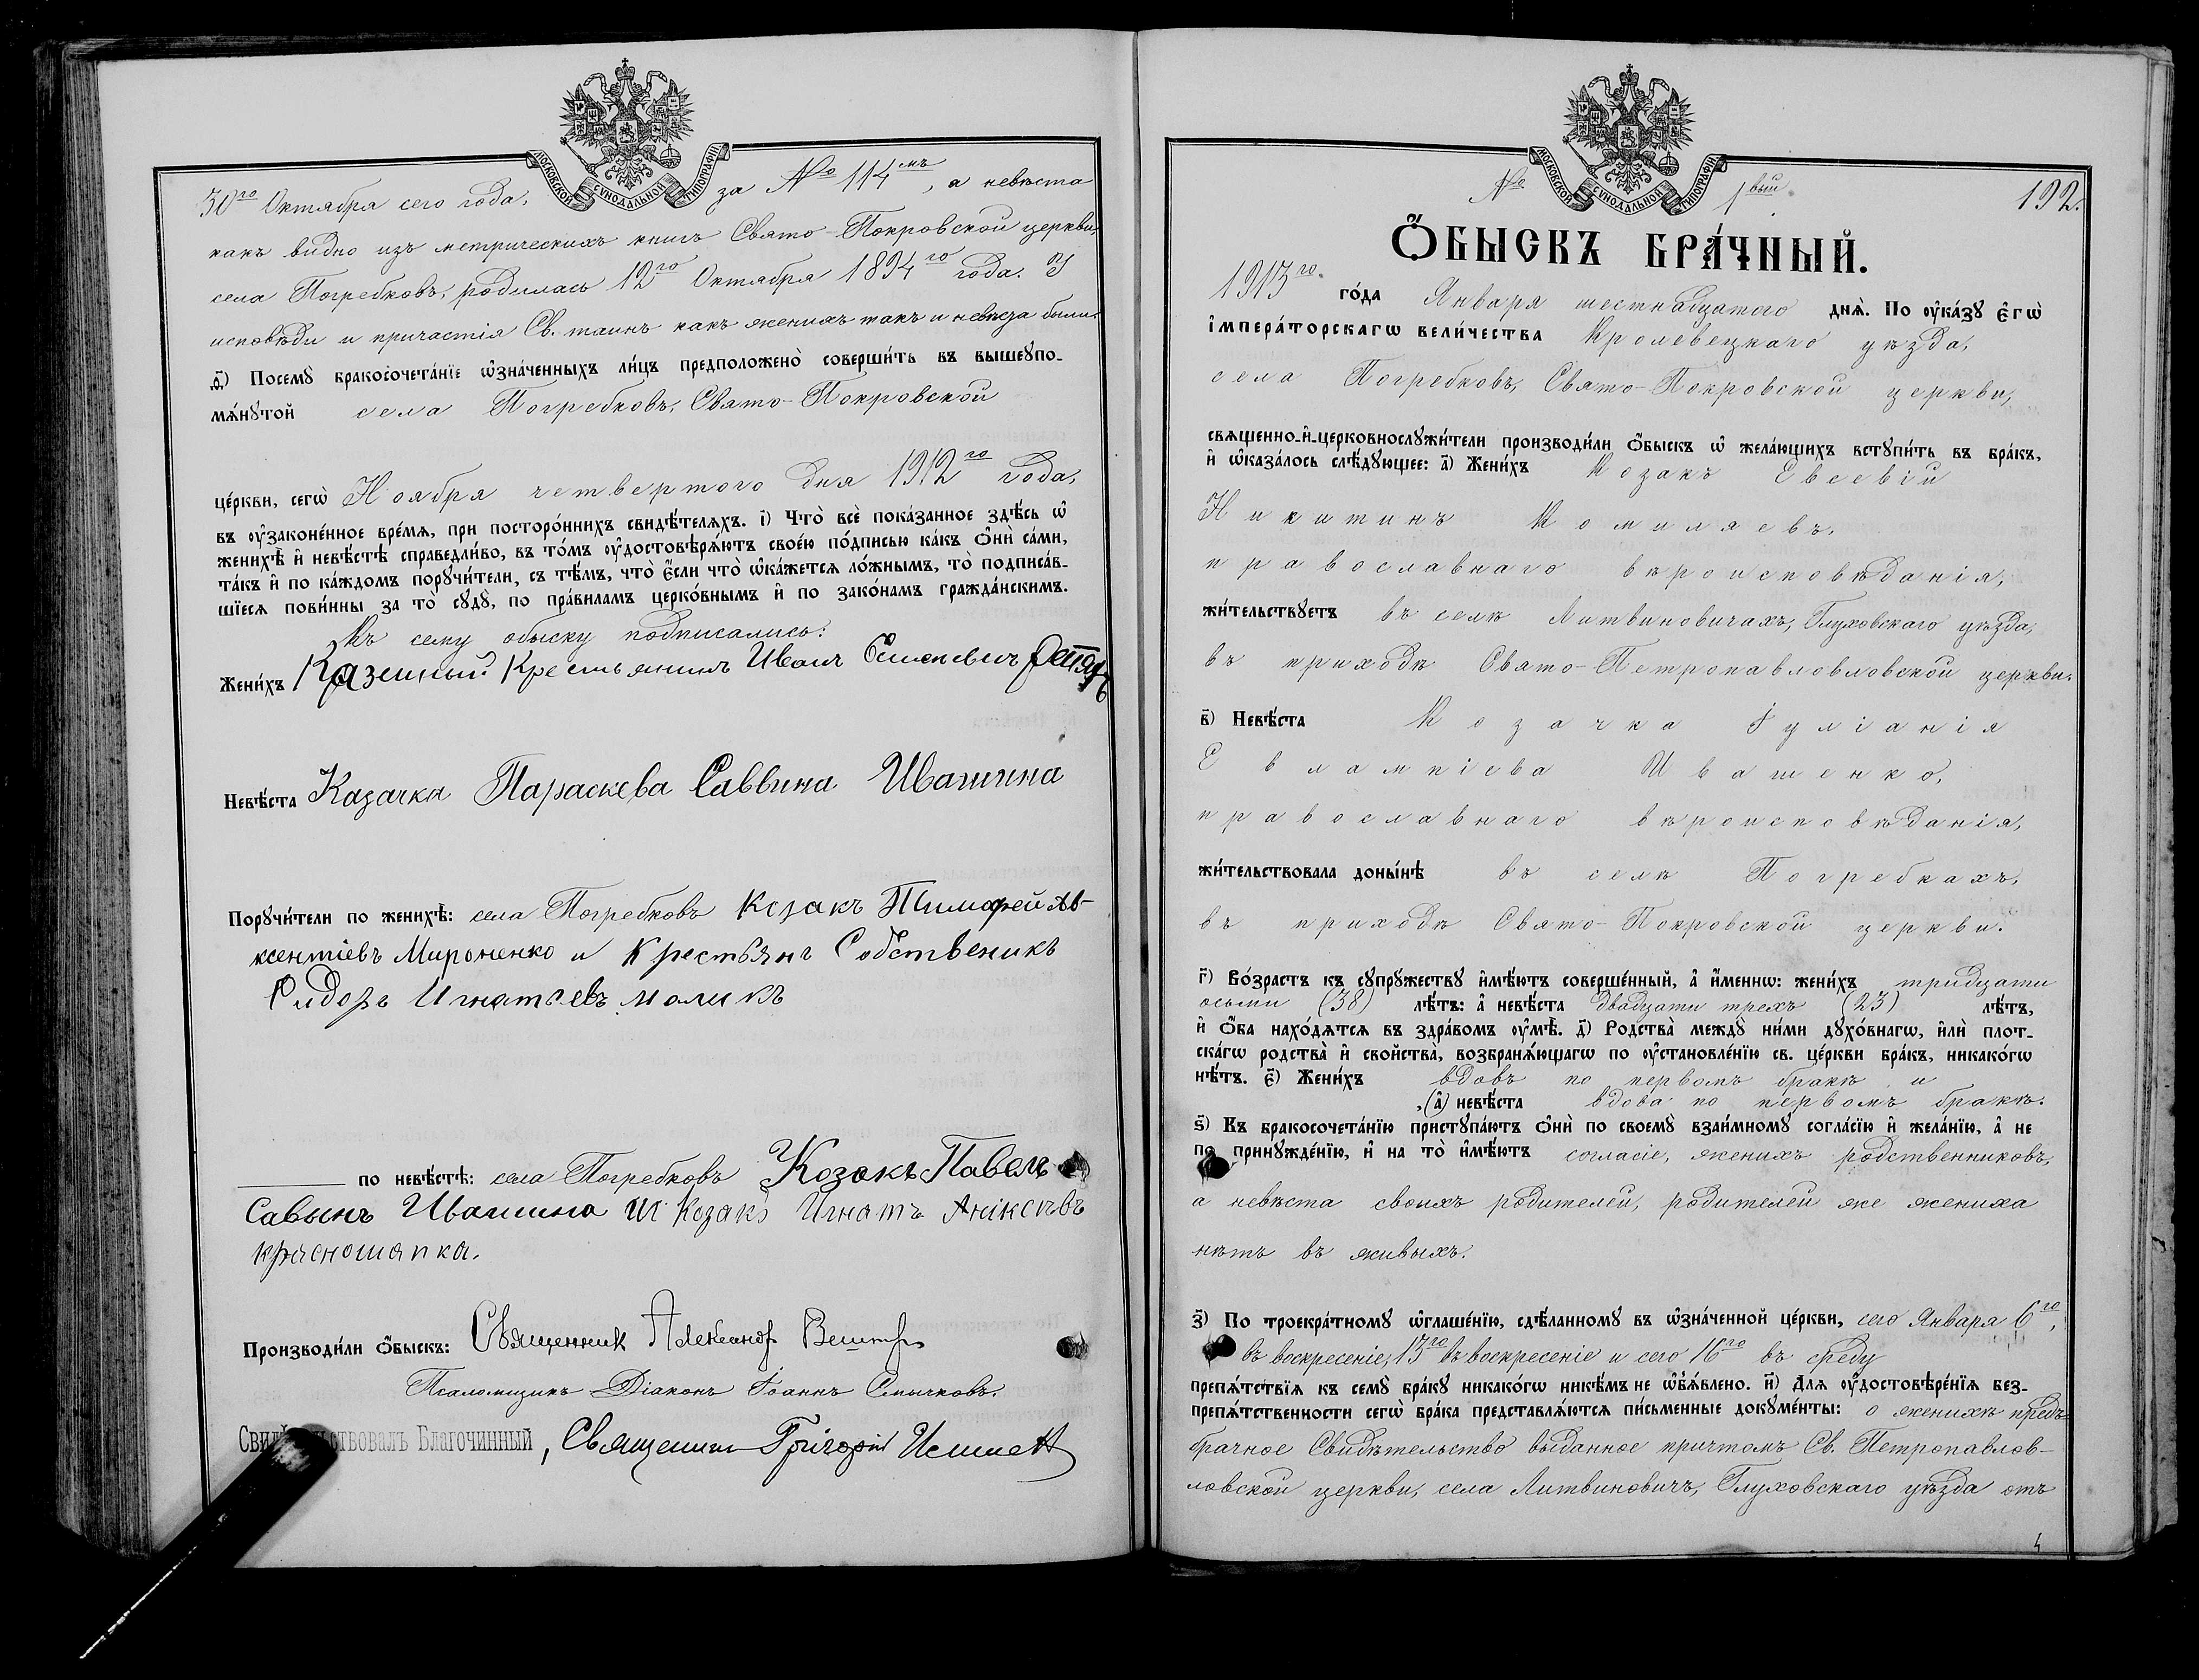 МОСКОВСКОЙ СѴНОДАЛЬНОЙ ТИПОГРАФІИ
30го Октября сего года, за № 114мъ, а невѣста
какъ видно изъ метрическихъ книгъ Свято-Покровской церкви,
села Погребковъ, родилась 12го Октября 1894го года. У
исповѣди и причастія Св. таинъ какъ женихъ такъ и невѣста были.
д҃) Посемꙋ̀ бракосочета́нїе ѡ҆зна́ченныхъ ли́цъ предположено̀ соверши́ть въ вышеꙋпо-
мѧ́нꙋтой села Погребковъ, Свято-Покровской
це́ркви, сегѡ̀ Ноября четвертого дня 1912го года,
въ ᲂу҆законе́нное вре́мѧ, при посторо́ннихъ свидѣ́телѧхъ. і҃) Что̀ всѐ пока́занное здѣ́сь ѡ҆
женихѣ̀ и҆ невѣ́стѣ справедли́во, въ то́мъ ᲂу҆достовѣрѧ́ютъ свое́ю по́дписью ка́къ ѻ҆нѝ са́ми,
та́къ и҆ по ка́ждомъ порꙋчи́тели, съ тѣ́мъ, что̀ є҆́сли что̀ ѡ҆ка́жетсѧ ло́жнымъ, то̀ подписа́в-
шїесѧ пови́нны за то̀ сꙋдꙋ̀, по пра́виламъ церко́внымъ и҆ по зако́намъ гражда́нскимъ.
Къ сему обыску подписались:
Жени́хъ Казенный Крестьянинъ Иванъ
Невѣ́ста Казачка Параскева Саввина Ивашина
Порꙋчи́тели по женихѣ̀: села Погребковъ Козакъ Тимофей Ав-
ксентіевъ Мироненко и Крестьянъ Собственикъ
Сидоръ Игнатьевъ Маликъ
по невѣ́стѣ: села Погребковъ Козакъ Павелъ
Савынъ Ивашина И Козакъ Игнатъ
красношапка.
Производи́ли ѻ҆́быскъ: Священник Александр
Псаломщикъ Діаконъ Іоаннъ Смычковъ.
Свидѣтельствовалъ Благочинный, Священникъ Григорій
МОСКОВСКОЙ СѴНОДАЛЬНОЙ ТИПОГРАФІИ
№ 1вый. 192.
Ѻ҆́БЫСКЪ БРА́ЧНЫЙ.
1913го. го́да Января шестнадцатого днѧ̀. По ᲂу҆ка́зꙋ є҆гѡ̀
і҆мпера́торскагѡ вели́чества Кролевецкаго уѣзда,
села Погребковъ, Свято-Покровской церкви,
свѧщенно-и҆-церковнослꙋжи́тели производи́ли ѻ҆́быскъ ѡ҆ жела́ющихъ встꙋпи́ть въ бра́къ,
и҆ ѡ҆каза́лось слѣ́дꙋющее: а҃) Жени́хъ Козакъ Евсевій
Никитинъ Комиляевъ,
православнаго вѣроисповѣданія,
жи́тельствꙋетъ въ селѣ Литвиновичахъ, Глуховскаго уѣзда,
въ приходѣ Свято-Петропавловловской церкви.
в҃) Невѣ́ста Козачка Іуліанія
Евлампіева Иващенко,
православнаго вѣроисповѣданія,
жи́тельствовала доны́нѣ въ селѣ Погребкахъ,
въ приходѣ Свято-Покровской церкви.
г҃) Во́зрастъ къ сꙋпрꙋ́жествꙋ и҆мѣ́ютъ соверше́нный, а҆ и҆́меннѡ: жени́хъ тридцати
осьми (38) лѣ́тъ: а҆ невѣ́ста двадцати трехъ (23) лѣ́тъ,
и҆ ѻ҆́ба нахо́дѧтсѧ въ здра́вомъ ᲂу҆мѣ̀. д҃) Родства̀ междꙋ̀ ни́ми дꙋхо́внагѡ, и҆лѝ плот-
ска́гѡ родства̀ и҆ свойства̀, возбранѧ́ющагѡ по ᲂу҆становле́нїю св. це́ркви бра́къ, никако́гѡ
нѣ́тъ. є҃) Жени́хъ вдовъ по первомъ бракѣ и
, (а҆) невѣ́ста вдова по первомъ бракѣ.
ѕ҃) Къ бракосочета́нїю пристꙋпа́ютъ ѻ҆нѝ по своемꙋ̀ взаи́мномꙋ согла́сїю и҆ жела́нїю, а҆ не
по принꙋжде́нїю, и҆ на то̀ и҆мѣ́ютъ согласіе, женихъ родственниковъ,
а невѣста своихъ родителей, родителей же жениха
нѣтъ въ живыхъ.
з҃) По троекра́тномꙋ ѡ҆глаше́нїю, сдѣ́ланномꙋ въ ѡ҆зна́ченной це́ркви, сего Января 6го,
въ воскресеніе, 13го въ воскресеніе и сего 16го въ среду
препѧ́тствїѧ къ семꙋ̀ бра́кꙋ никако́гѡ никѣ́мъ не ѡ҆б̾ѧ́влено. и҃) Длѧ ᲂу҆достовѣре́нїѧ без-
препѧ́тственности сегѡ̀ бра́ка представлѧ́ютсѧ пи́сьменные докꙋме́нты: о женихѣ пред-
брачное Свидѣтельство выданное причтомъ Св. Петропавлов-
ловской церкви, села Литвиновичъ, Глуховскаго уѣзда отъ